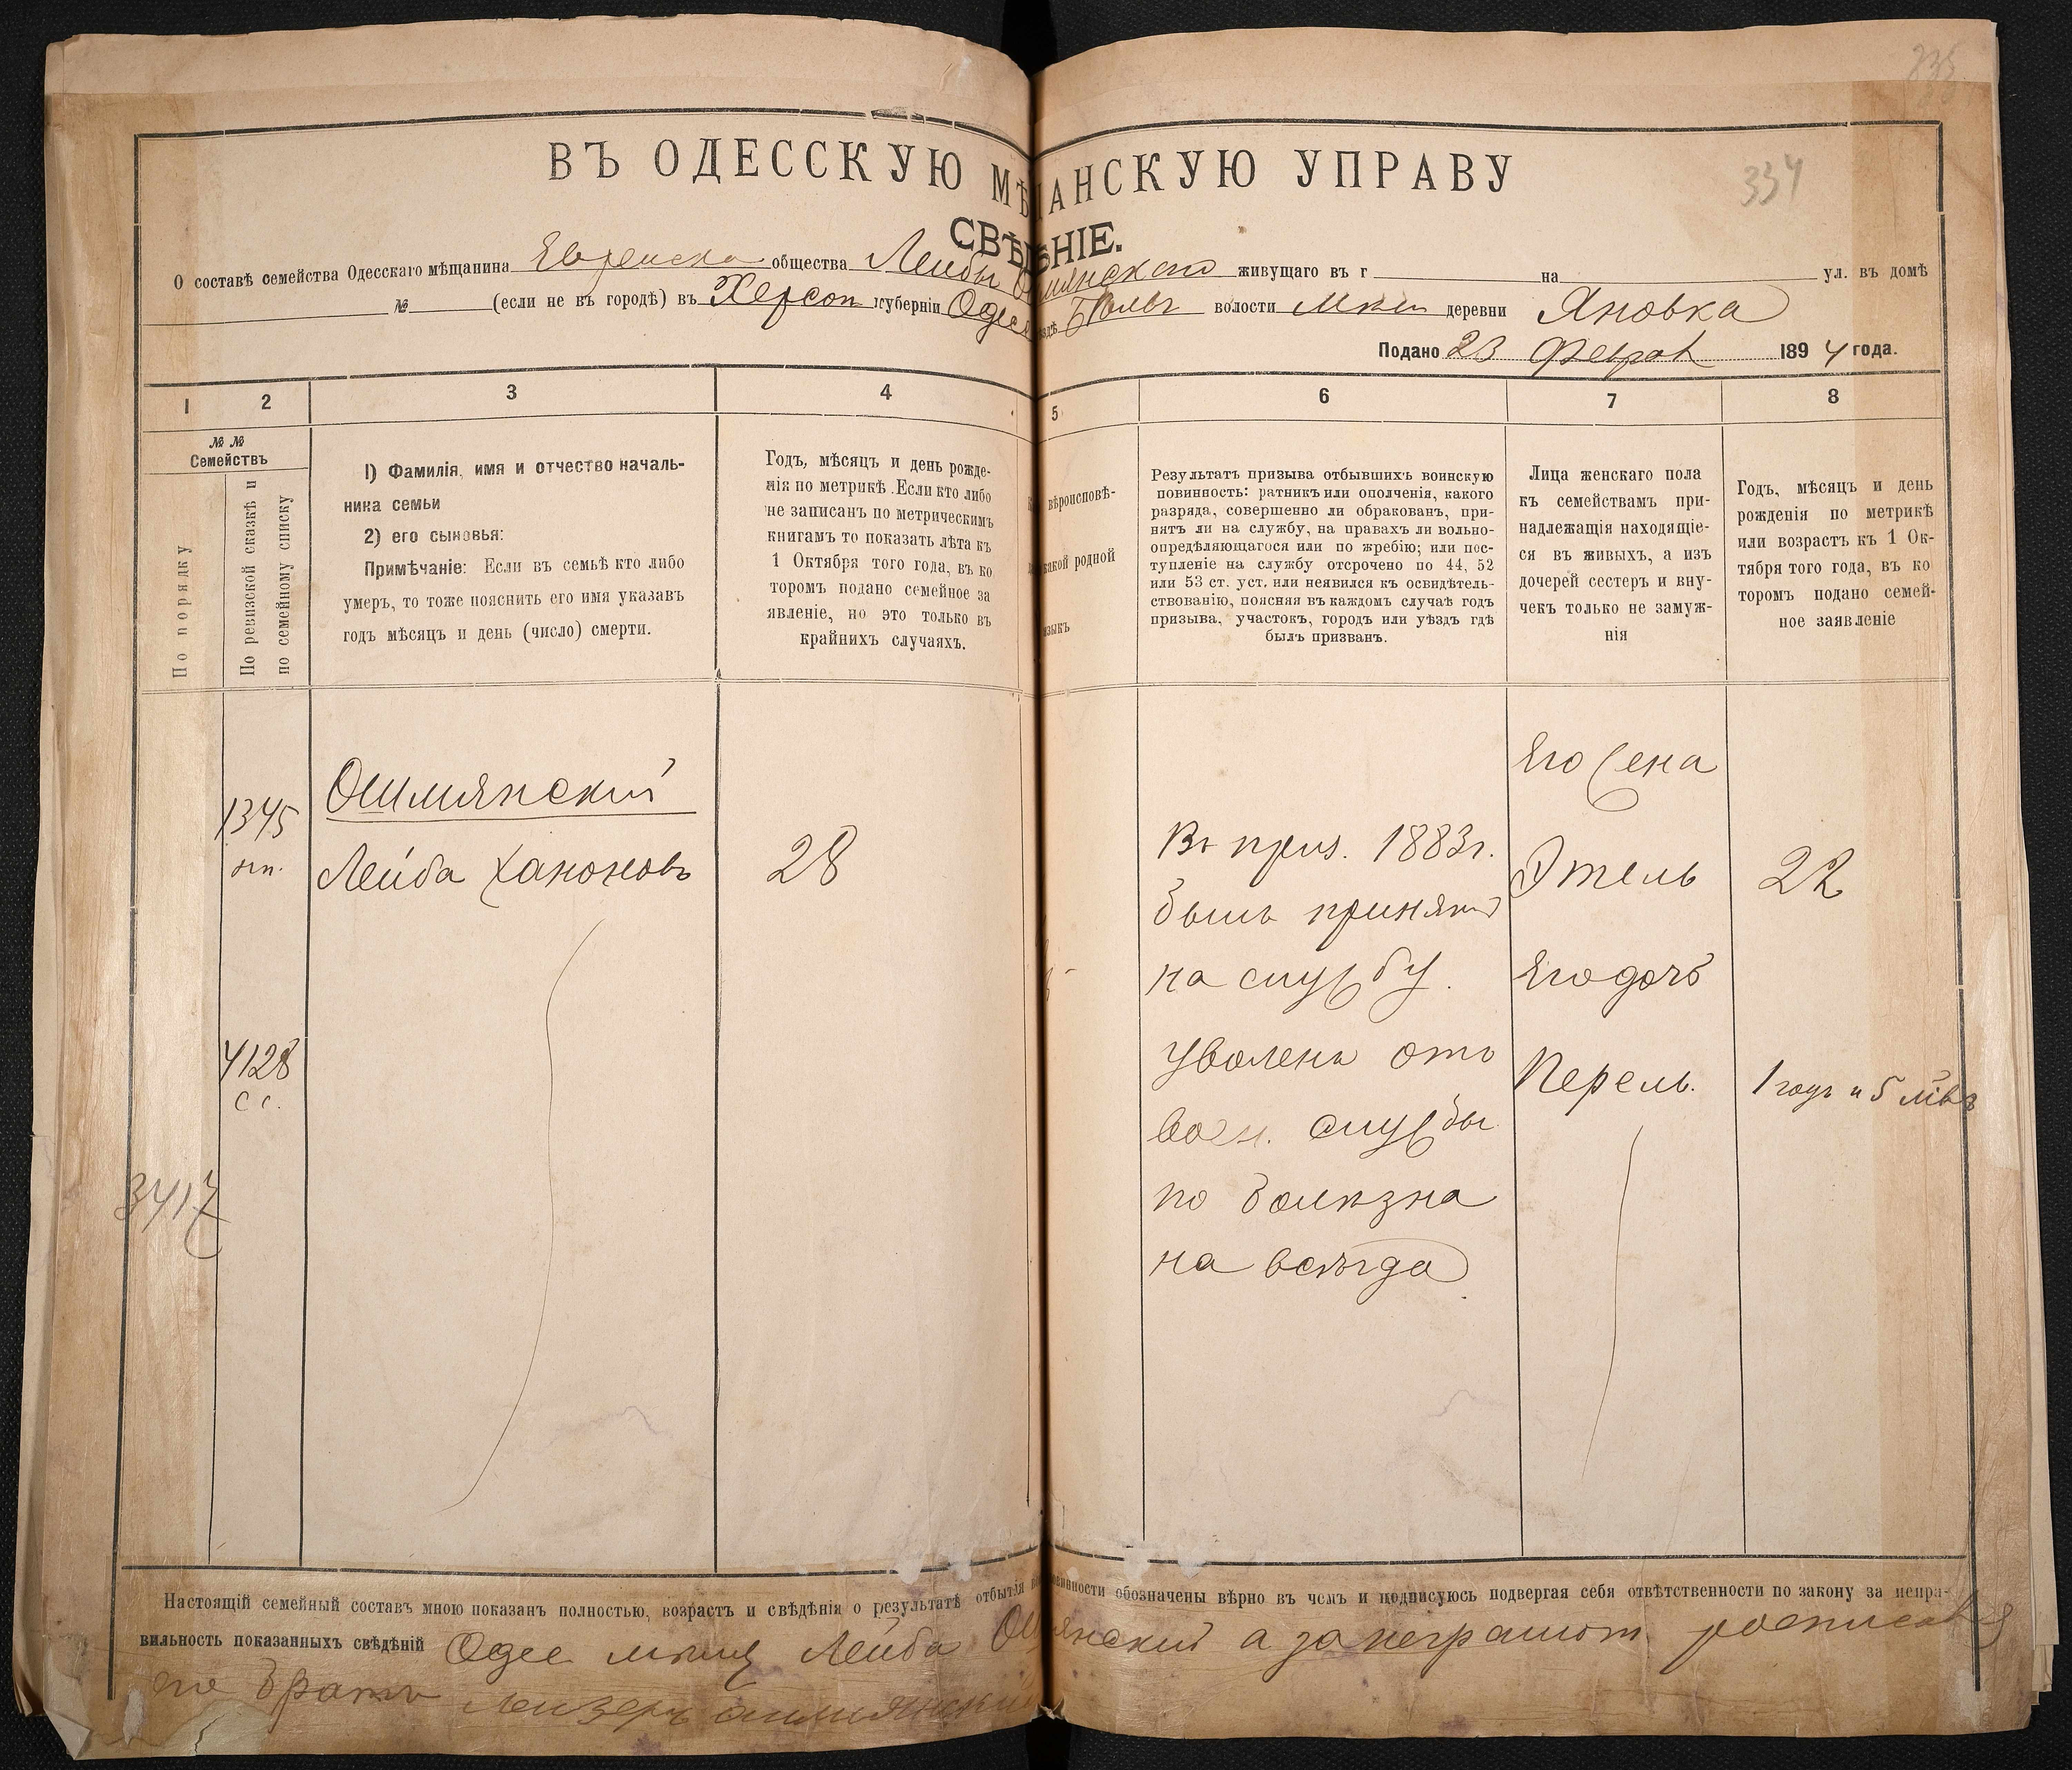 335
334
ВЪ ОДЕССКУЮ МѢЩАНСКУЮ УПРАВУ
СВѢДѢНІЕ.
О составѣ семейства Одесскаго мѣщанина Еврейска общества Лейбы Ошмянскаго живущаго въ г на ул. въ домѣ
№ (если не въ городѣ) въ Херсон губерніи Одесс уѣздѣ волости деревни Яновка
Подано 23 Феврал 1894 года.
1 2 3 4 5 6 7 8
№№
Семействъ
По порядку
По ревизской сказкѣ и
по семейному списку
1) Фамилія, имя и отчество началь-
ника семьи
2) его сыновья:
Примѣчаніе: Если въ семьѣ кто либо
умеръ, то тоже пояснить его имя указавъ
годъ мѣсяцъ и день (число) смерти.
Годъ, мѣсяцъ и день рожде-
нія по метрикѣ. Если кто либо
не записанъ по метрическимъ
книгамъ то показать лѣта къ
1 Октября того года, въ ко
торомъ подано семейное за
явленіе, но это только въ
крайнихъ случаяхъ.
вѣроисповѣ-
какой родной
языкъ
Результатъ призыва отбывшихъ воинскую
повинность: ратникъ или ополченія, какого
разряда, совершенно ли обракованъ, при-
нятъ ли на службу, на правахъ ли вольно-
опредѣляющагося или по жребію; или пос-
тупленіе на службу отсрочено по 44, 52
или 53 ст. уст. или неявился къ освидѣтель-
ствованію, поясняя въ каждомъ случаѣ годъ
призыва, участокъ, городъ или уѣздъ гдѣ
былъ призванъ.
Лица женскаго пола
къ семействамъ при-
надлежащія находящіе-
ся въ живыхъ, а изъ
дочерей сестеръ и вну-
чекъ только не замуж-
нія
Годъ, мѣсяцъ и день
рожденія по метрикѣ
или возрастъ къ 1 Ок-
тября того года, въ ко
торомъ подано семей-
ное заявленіе
1345
Ошмянский
Лейба Ханоновъ
28
4128
с с.
3417
Въ приз. 1883г.
былъ принятъ
на службу.
уволенъ отъ
воен. службы
по болѣзна
на всѣгда
Его жена
Этель
22
Его дочь
Перель.
1 годъ и 5 мѣв
Настоящій семейный составъ мною показанъ полностью, возрастъ и свѣдѣнія о результатѣ отбытія повинности обозначены вѣрно въ чемъ и подписуюсь подвергая себя отвѣтственности по закону за непра-
вильность показанныхъ свѣдѣній Одес мѣщ Лейба Ошмянский а за неграмот. росписался
его братъ Лейзеръ Ошмянский